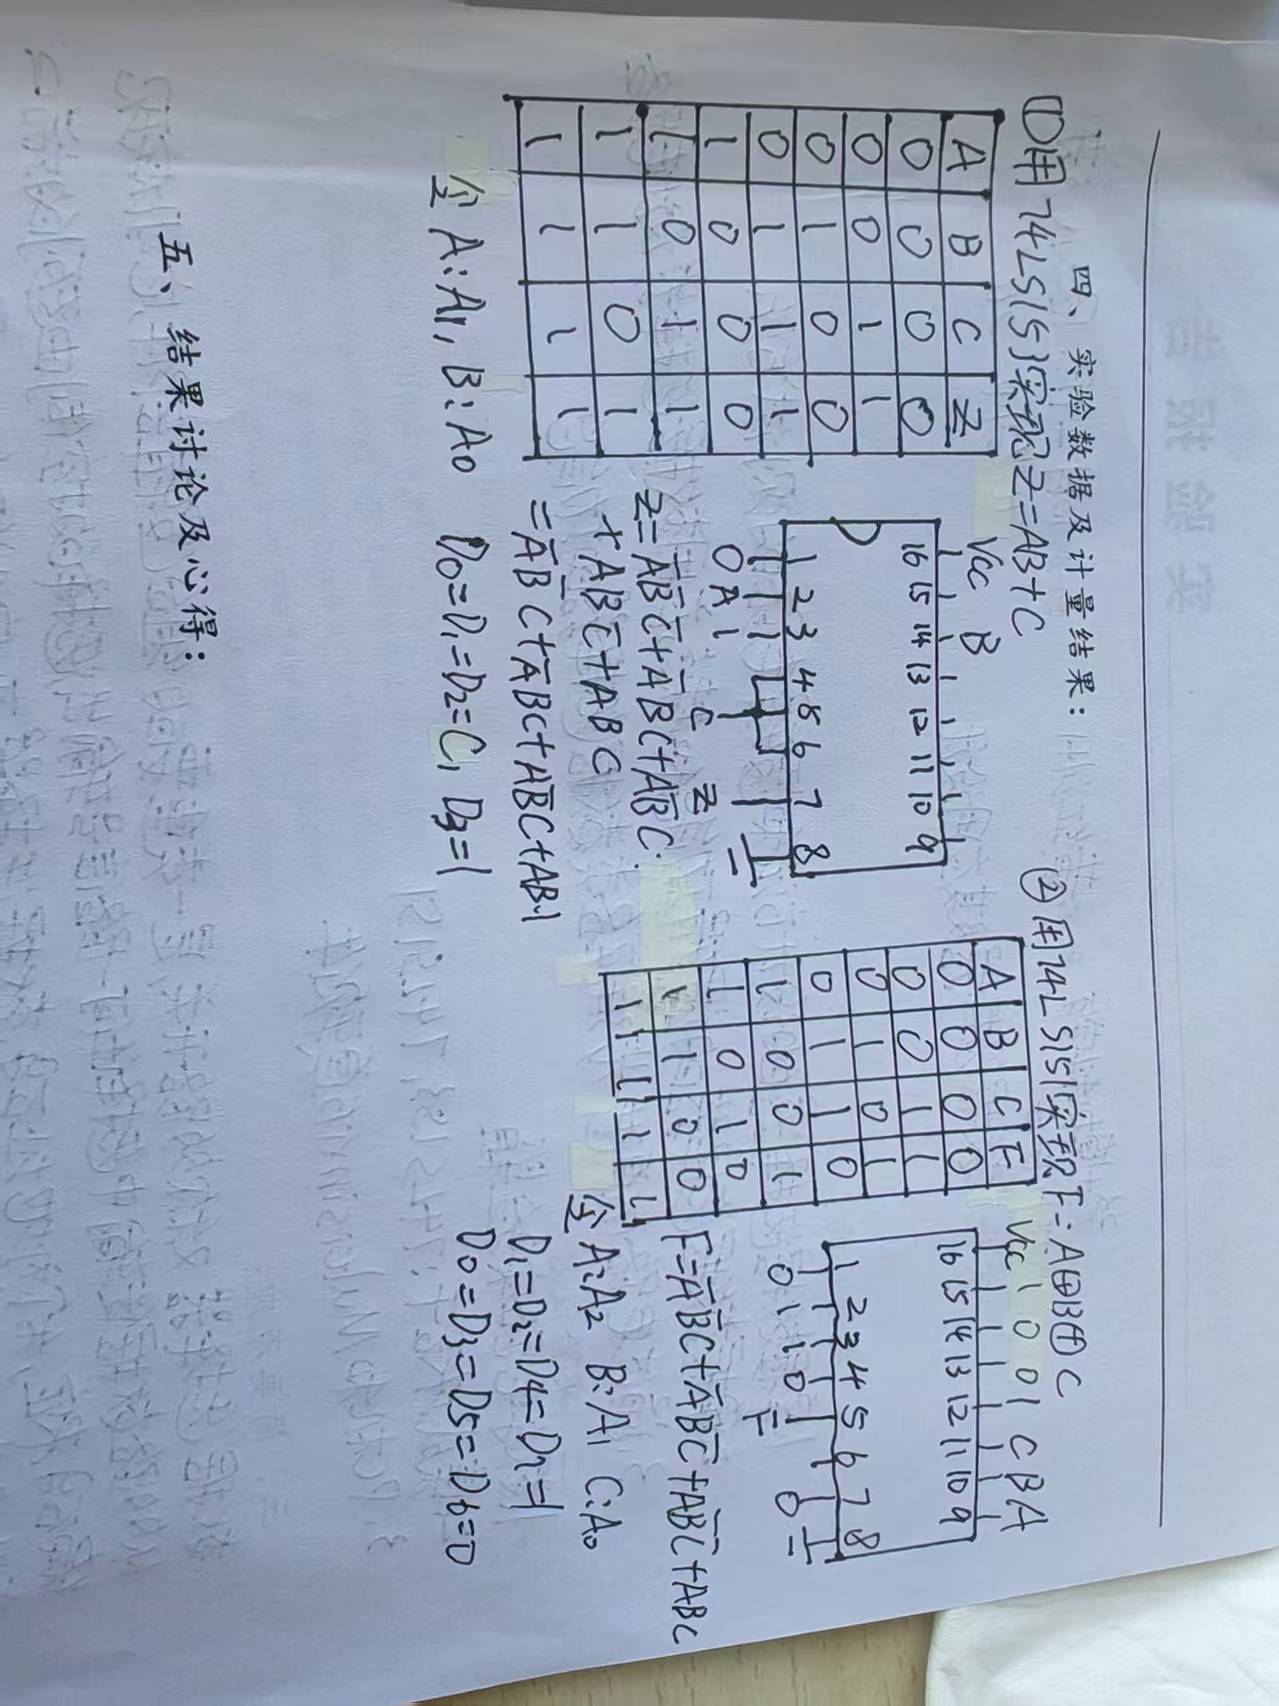 四、实验数据及计量结果：
①用74LS153实现Z=AB+C
A B C Z
0 0 0 0
0 0 1 1
0 1 0 0
0 1 1 1
1 0 0 0
1 0 1 1
1 1 0 1
1 1 1 1
Vcc B
16 15 14 13 12 11 10 9
1 2 3 4 5 6 7 8
0 A 1 C Z
Z=A̅B̅C̅+A̅BC+AB̅C
+ABC̅+ABC
=A̅B̅C+A̅BC+AB̅C+AB·1
令A:A₁, B:A₀ D₀=D₁=D₂=C, D₃=1
②用74LS151实现F=A⊕B⊕C
A B C F
0 0 0 0
0 0 1 1
0 1 0 1
0 1 1 0
1 0 0 1
1 0 1 0
1 1 0 0
1 1 1 1
Vcc 1 0 0 1 C B A
16 15 14 13 12 11 10 9
1 2 3 4 5 6 7 8
0 1 1 0 F 0
F=A̅B̅C+A̅BC̅+AB̅C̅+ABC
令A:A₂ B:A₁ C:A₀
D₁=D₂=D₄=D₇=1
D₀=D₃=D₅=D₆=0
五、结果讨论及心得：